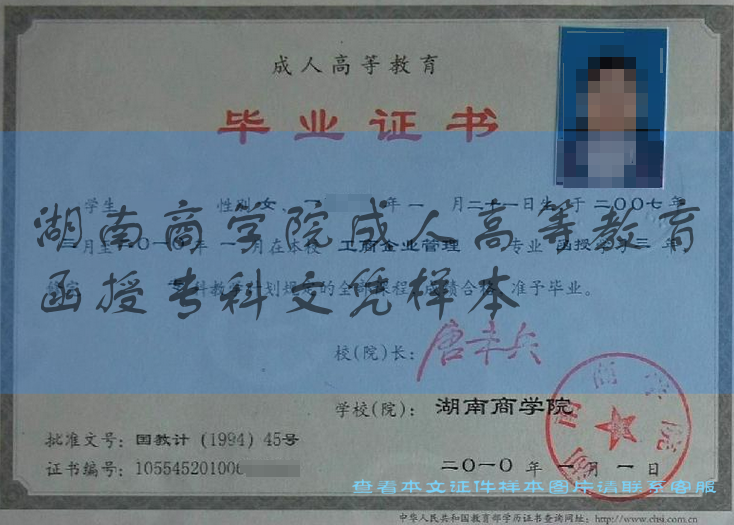 成人高等教育
毕业证书
学生 性别 女、 年 一 月二十一日生，于 二〇〇七 年
湖南商学院成人高等教育
三 月至二〇一〇年 一 月在本校 工商企业管理 专业 函授 三 年
函授专科文凭样本
科教学计划规定的全部课程，成绩合格，准予毕业。
校(院)长：
学校(院)： 湖南商学院
批准文号：国教计 (1994) 45号
证书编号：105545201006
二〇一〇 年 一 月 一 日
查看本文证件样本图片请联系客服
中华人民共和国教育部学历证书查询网址：http://www.chsi.com.cn